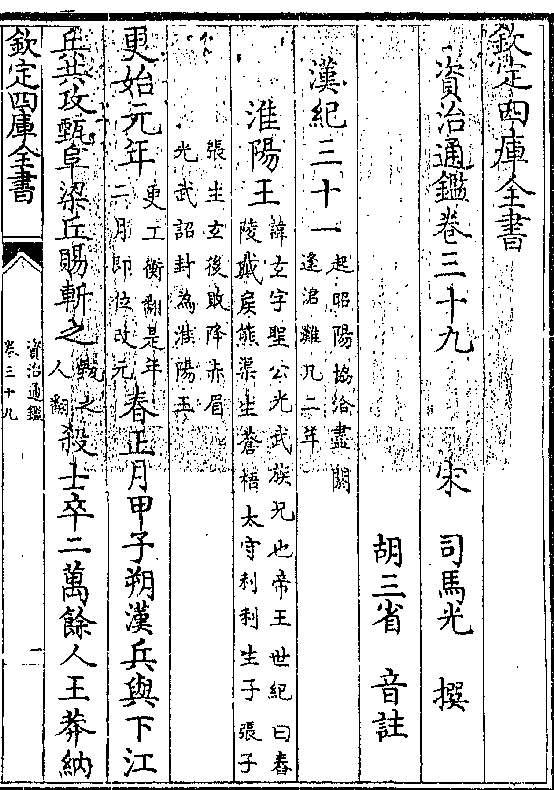 欽定四庫全書
資治通鑑卷三十九　宋　司馬光　撰
胡三省　音註
漢紀三十一　起昭陽協洽盡閼
逢涒灘凡二年
淮陽王　諱玄字聖公光武族兄也帝王世紀曰舂
陵戴侯熊渠生蒼梧太守利利生子張子
張生玄後敗降赤眉
光武詔封為淮陽王
更始元年　更工衡翻是年
二月即位改元　春正月甲子朔漢兵與下江
兵共攻甄阜梁丘賜斬之　甄之
人翻　殺士卒二萬餘人王莽納
欽定四庫全書
資治通鑑
卷三十九
一